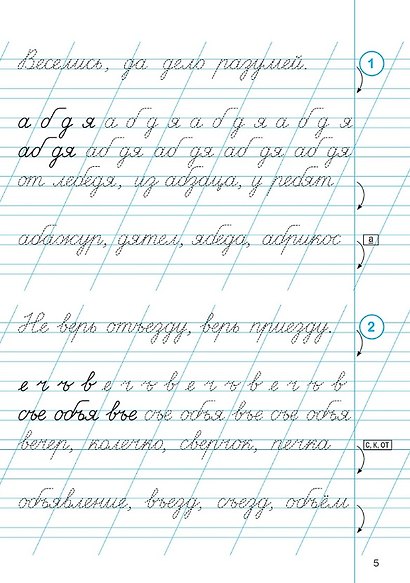 Веселись, да дело разумей.
1
а б д я а б д я а б д я а б д я
аб дя аб дя аб дя аб дя аб дя
от лебедя, из абзаца, у ребят
абажур, дятел, ябеда, абрикос
а
Не верь отъезду, верь приезду.
2
е ч ъ в е ч ъ в е ч ъ в е ч ъ в
съе объя въе съе объя въе съе объя
вечер, колечко, сверчок, печка
с, к, от
объявление, въезд, съезд, объём
5